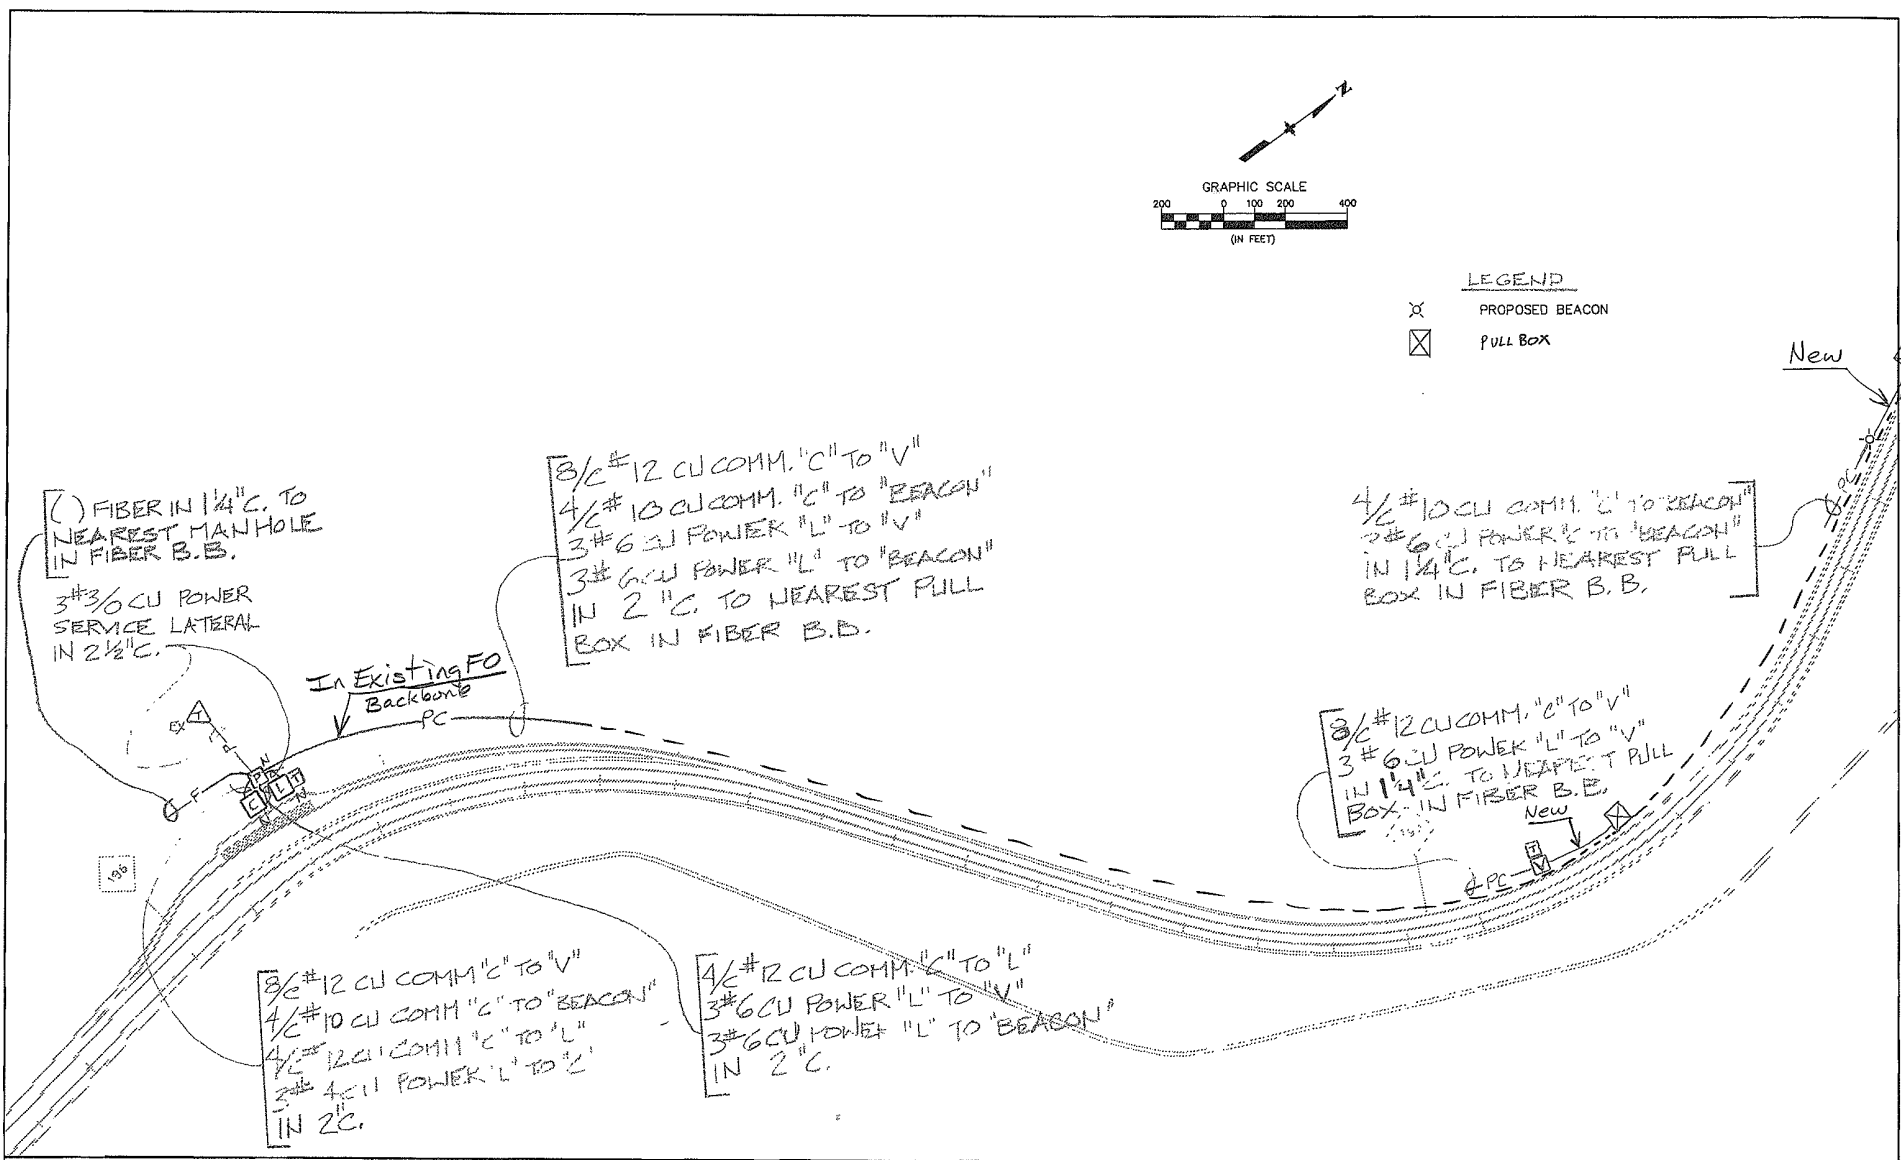 N
GRAPHIC SCALE
200 0 100 200 400
(IN FEET)
LEGEND
PROPOSED BEACON
PULL BOX
New
[( ) FIBER IN 1¼"C. TO
NEAREST MANHOLE
IN FIBER B.B.
3#3/0 CU POWER
SERVICE LATERAL
IN 2½"C.
8/C #12 CU COMM. "C" TO "V"
4/C #10 CU COMM. "C" TO "BEACON"
3#6 CU POWER "L" TO "V"
3#6 CU POWER "L" TO "BEACON"
IN 2"C. TO NEAREST PULL
BOX IN FIBER B.B.
4/C #10 CU COMM. "C" TO "BEACON"
#6 CU POWER TO "BEACON"
IN 1¼"C. TO NEAREST PULL
BOX IN FIBER B.B.
PC
In Existing FO
Backbone
PC
EX T
P
N
P
T
L
C
N
N
F
196
8/C #12 CU COMM. "C" TO "V"
3#6 CU POWER "L" TO "V"
IN 1¼"C. TO NEAREST PULL
BOX IN FIBER B.B.
New
T
V
PC
8/C #12 CU COMM "C" TO "V"
4/C #10 CU COMM "C" TO "BEACON"
4/C #12 CU COMM "C" TO "L"
3#4 CU POWER "L" TO "C"
IN 2"C.
4/C #12 CU COMM. "C" TO "L"
3#6 CU POWER "L" TO "V"
3#6 CU POWER "L" TO "BEACON"
IN 2"C.